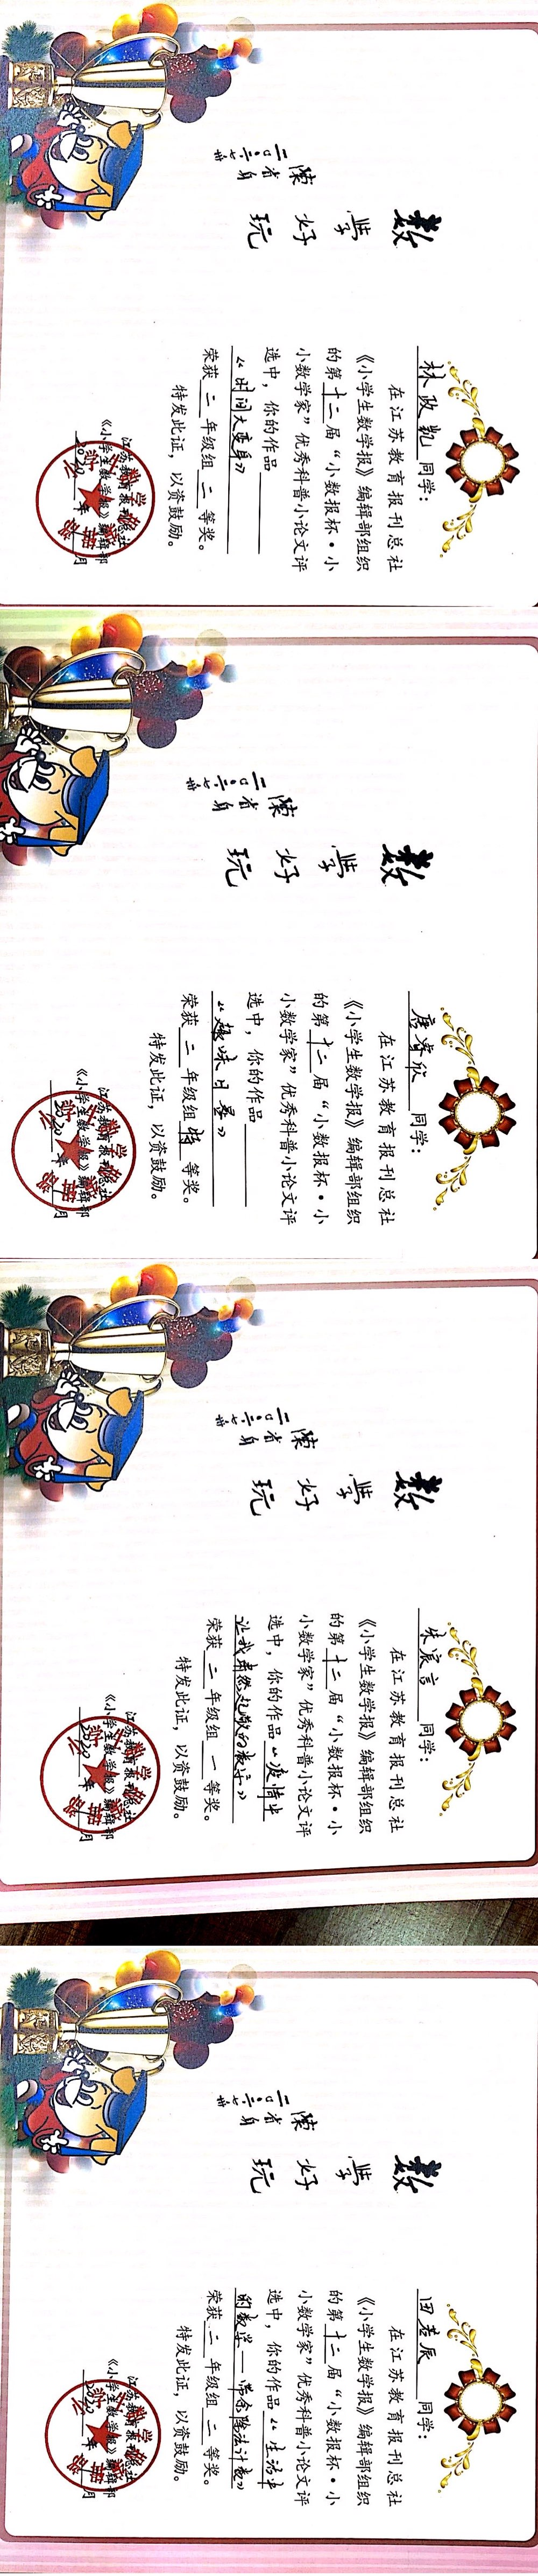 数学好玩
陈省身
二〇〇二
七卅
林政凯 同学：
在江苏教育报刊总社
《小学生数学报》编辑部组织
的第十二届“小数报杯·小
小数学家”优秀科普小论文评
选中，你的作品
《时间大变身》
荣获 二 年级组 二 等奖。
特发此证，以资鼓励。
江苏教育报刊总社
《小学生数学报》编辑部
2020 年 月
数学好玩
陈省身
二〇〇二
七卅
唐睿欣 同学：
在江苏教育报刊总社
《小学生数学报》编辑部组织
的第十二届“小数报杯·小
小数学家”优秀科普小论文评
选中，你的作品
《趣味日晷》
荣获 二 年级组 特 等奖。
特发此证，以资鼓励。
江苏教育报刊总社
《小学生数学报》编辑部
年 月
数学好玩
陈省身
二〇〇二
七卅
朱宸言 同学：
在江苏教育报刊总社
《小学生数学报》编辑部组织
的第十二届“小数报杯·小
小数学家”优秀科普小论文评
选中，你的作品《疫情中
让我肃然起敬的数字》
荣获 二 年级组 一 等奖。
特发此证，以资鼓励。
江苏教育报刊总社
《小学生数学报》编辑部
2020 年 月
数学好玩
陈省身
二〇〇二
七卅
田 辰 同学：
在江苏教育报刊总社
《小学生数学报》编辑部组织
的第十二届“小数报杯·小
小数学家”优秀科普小论文评
选中，你的作品《生活中
的数学——带余除法计数》
荣获 二 年级组 二 等奖。
特发此证，以资鼓励。
江苏教育报刊总社
《小学生数学报》编辑部
2020 年 月